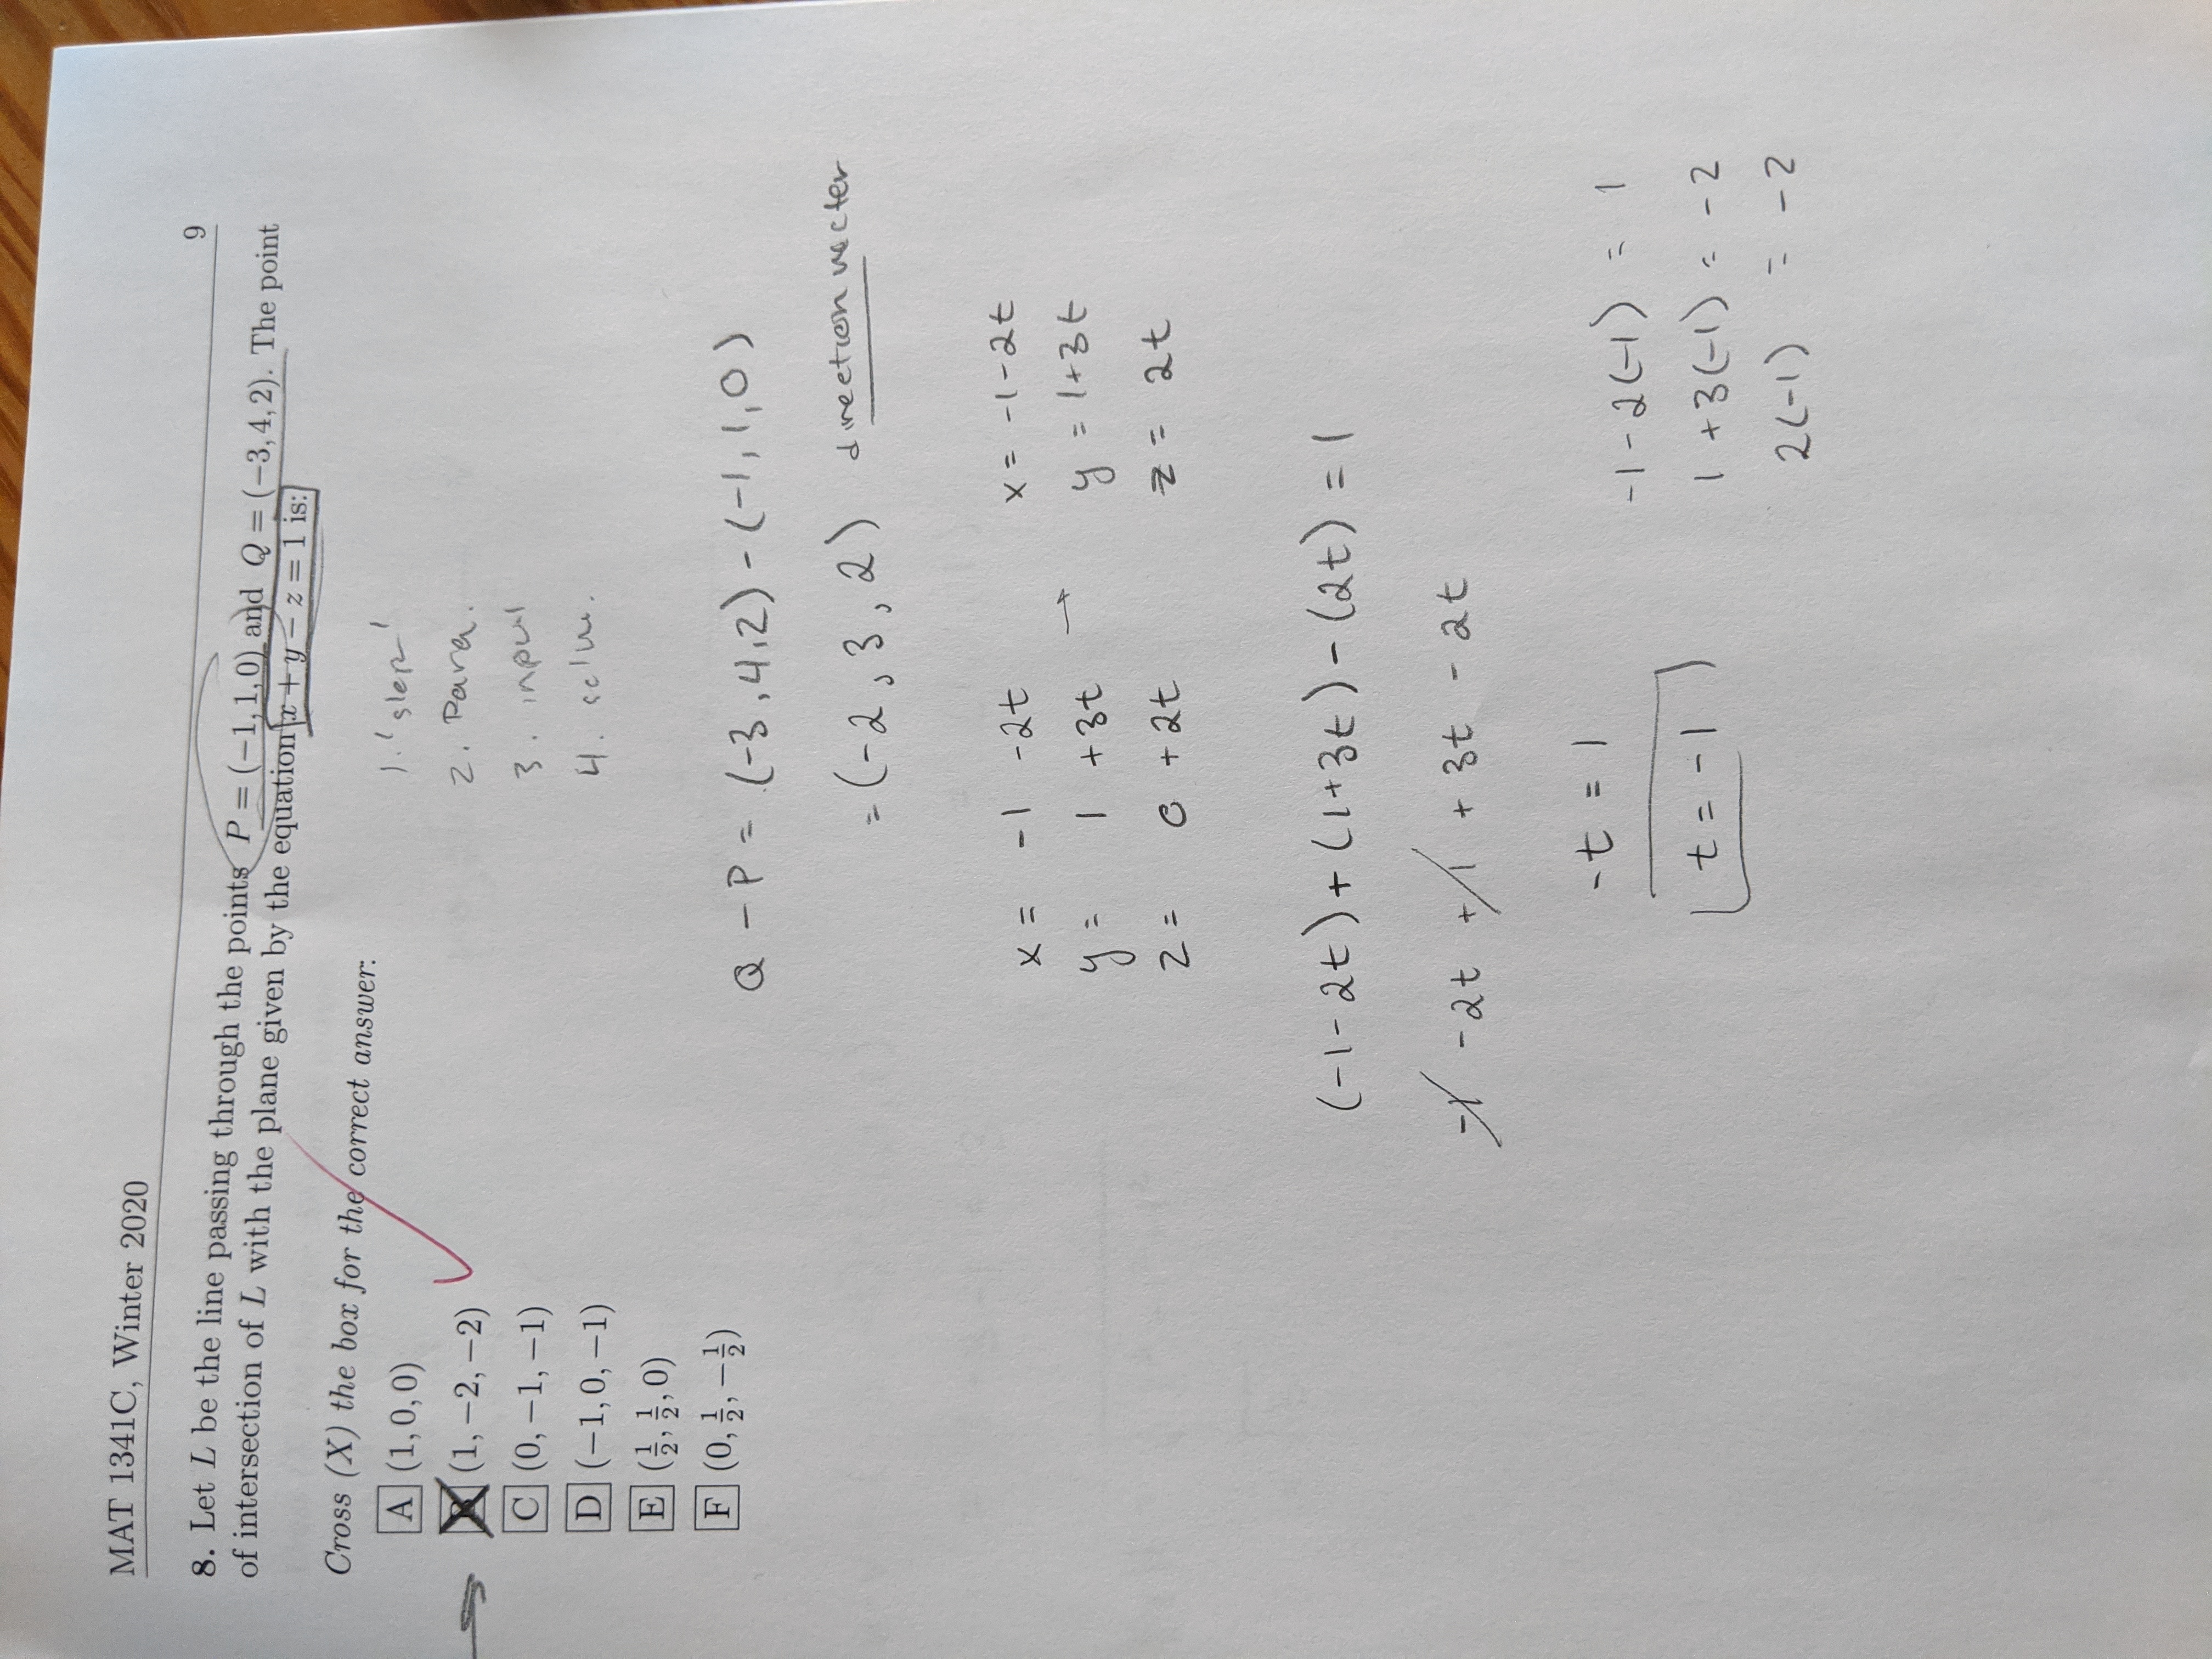 MAT 1341C, Winter 2020 9
8. Let L be the line passing through the points P = (−1, 1, 0) and Q = (−3, 4, 2). The point
of intersection of L with the plane given by the equation x + y − z = 1 is:
Cross (X) the box for the correct answer:
A (1, 0, 0)
B (1, −2, −2)
C (0, −1, −1)
D (−1, 0, −1)
E (1/2, 1/2, 0)
F (0, 1/2, −1/2)
1.
2. Para.
3. input
4.
Q - P = (-3, 4, 2) - (-1, 1, 0)
= (-2, 3, 2) direction vector
x = -1 -2t x = -1 - 2t
y = 1 +3t → y = 1+3t
z = 0 +2t z = 2t
(-1-2t) + (1+3t) - (2t) = 1
-1 -2t +1 + 3t - 2t
-t = 1
t = -1
-1 - 2(-1) = 1
1 + 3(-1) = -2
2(-1) = -2